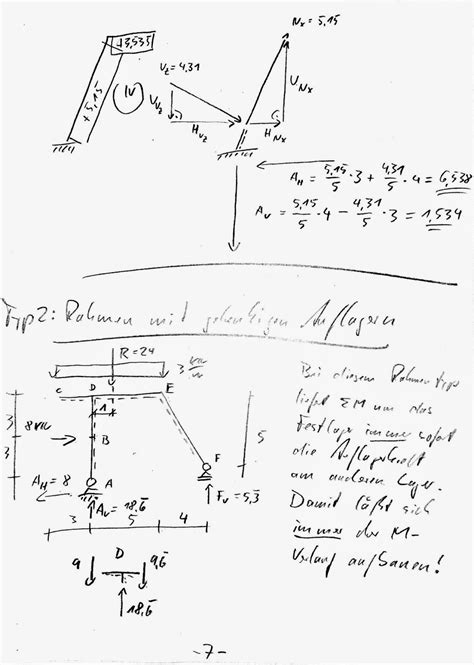 Nx = 5,15
+3,535
+5,15
IV
Vz = 4,31
VVz
HVz
VNx
HNx
AH = 5,15/5 · 3 + 4,31/5 · 4 = 6,538
AV = 5,15/5 · 4 − 4,31/5 · 3 = 1,534
Typ 2: Rahmen mit gelenkigen Auflagern
R = 24
3 kN/m
C D E
1
3
8 kN
B
3
5
F
AH = 8
A
AV = 18,6̅
FV = 5,3̅
3 5 4
Bei diesem Rahmentyp
liefert ΣM um das
Festlager immer sofort
die Auflagerkraft
am anderen Lager.
Damit läßt sich
immer der M-
Verlauf aufbauen!
9
D
9,6̅
18,6̅
-7-